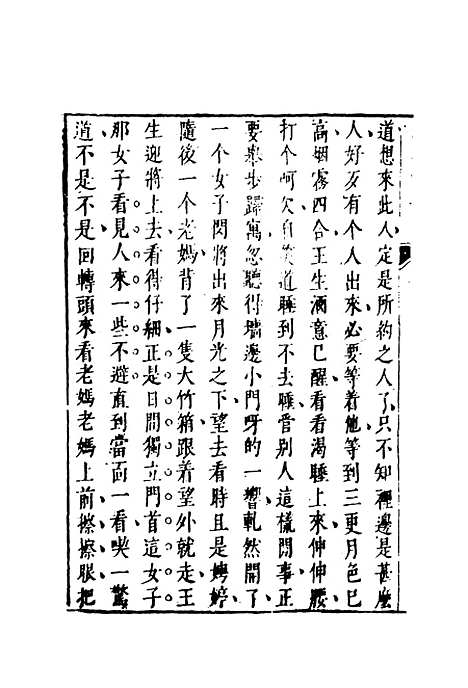 道想來此人定是所約之人了只不知裡邊是甚麽
人好歹有个人出來必要等着他等到三更月色已
高烟霧四合王生酒意已醒看看渴睡上來伸伸腰
打个呵欠自笑道睡到不去睡管別人這樣閒事正
要舉步歸寓忽聽得墻邊小門呀的一響軋然開了
一个女子閃將出來月光之下望去看時且是娉婷
隨後一个老媽背了一隻大竹箱跟着望外就走王
生迎將上去看得仔細正是日間獨立門首這女子
那女子看見人來一些不避直到當面一看喫一驚
道不是不是回轉頭來看老媽老媽上前擦擦眼把